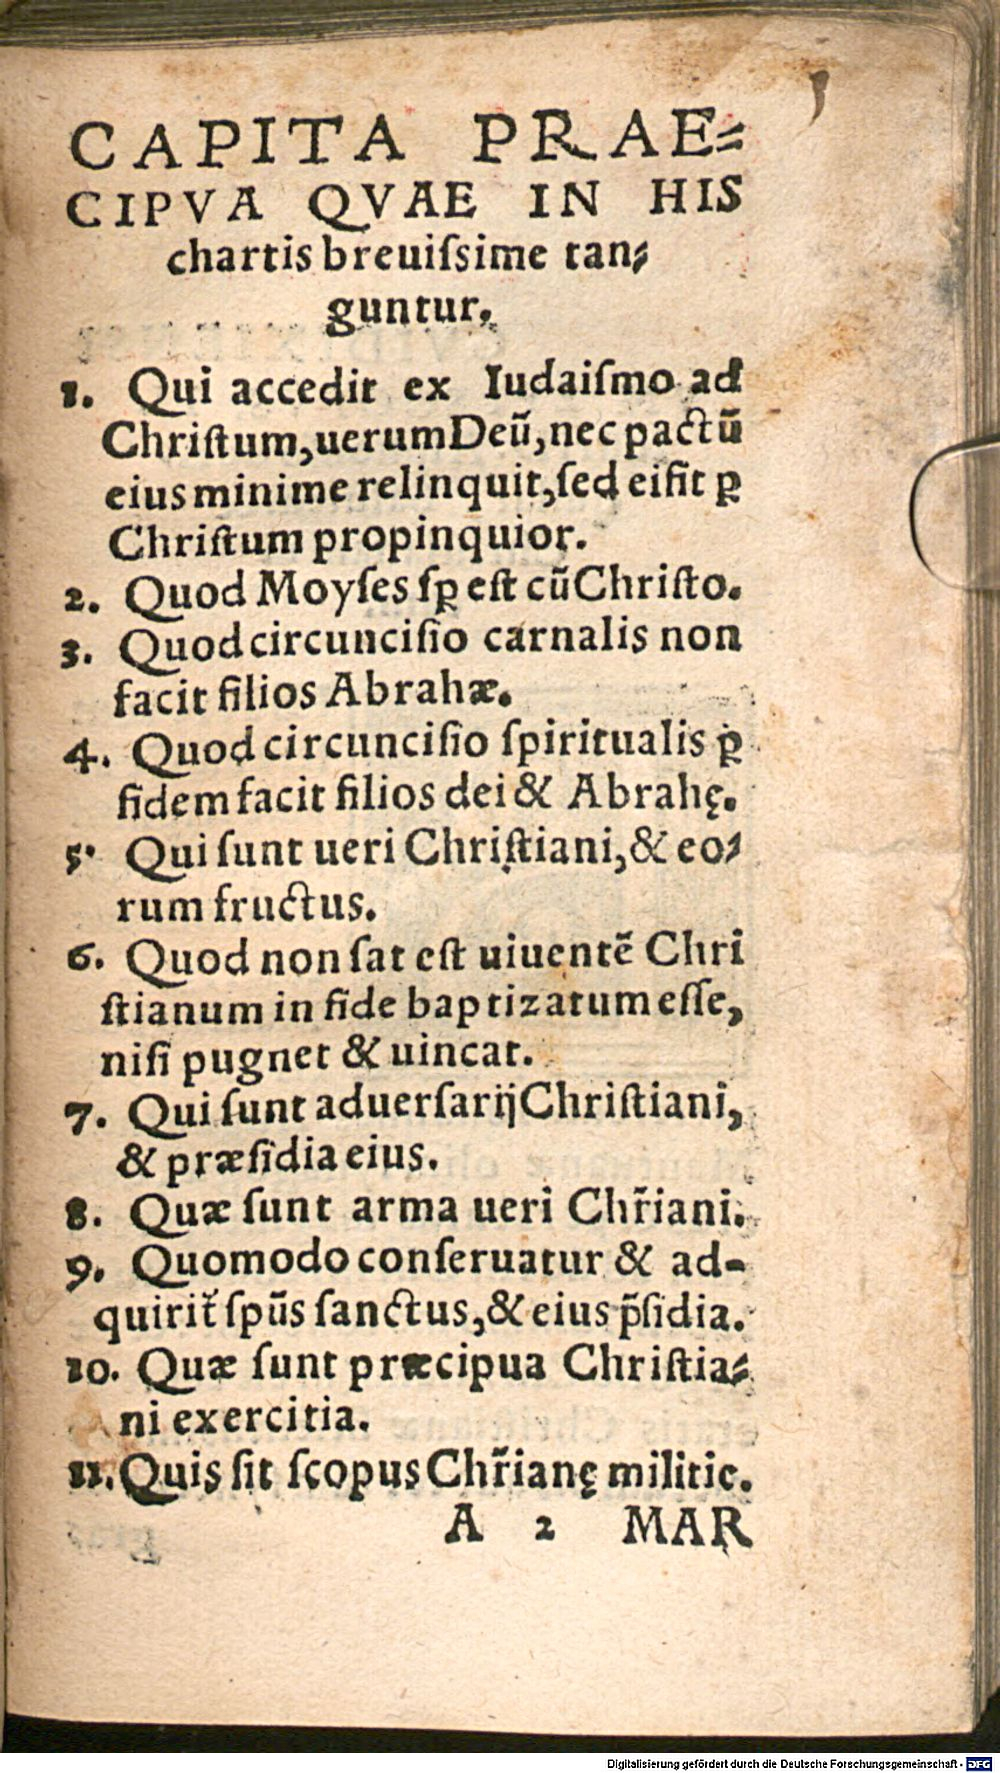 CAPITA PRAE⸗
CIPVA QVAE IN HIS
chartis breuiſsime tan⸗
guntur.
1. Qui accedit ex Iudaiſmo ad
Chriſtum, uerum Deũ, nec pactũ
eius minime relinquit, ſed ei ſit ꝑ
Chriſtum propinquior.
2. Quod Moyſes ſꝑ eſt cũ Chriſto.
3. Quod circunciſio carnalis non
facit filios Abrahæ.
4. Quod circunciſio ſpiritualis ꝑ
fidem facit filios dei & Abrahę.
5. Qui ſunt ueri Chriſtiani, & eo⸗
rum fructus.
6. Quod non ſat eſt uiuentẽ Chri
ſtianum in fide baptizatum eſſe,
niſi pugnet & uincat.
7. Qui ſunt aduerſarij Chriſtiani,
& præſidia eius.
8. Quæ ſunt arma ueri Chr̃iani.
9. Quomodo conſeruatur & ad-
quirit᷑ ſpũs ſanctus, & eius p̃ſidia.
10. Quæ ſunt præcipua Chriſtia⸗
ni exercitia.
11. Quis ſit ſcopus Chr̃ianę militie.
A 2 MAR
Digitalisierung gefördert durch die Deutsche Forschungsgemeinschaft - DFG